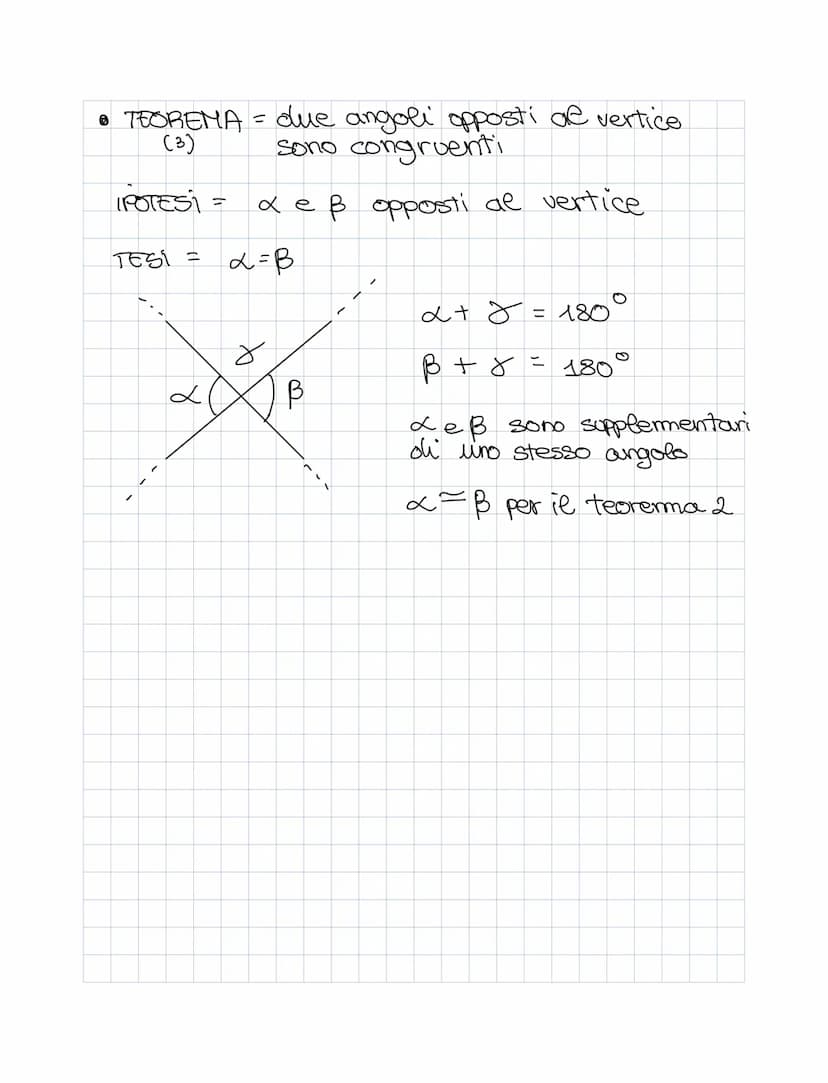 • TEOREMA = due angoli opposti al vertice
(3) sono congruenti
IPOTESI = α e β opposti al vertice
TESI = α=β
α + γ = 180°
γ
β + γ = 180°
α β
α e β sono supplementari
di uno stesso angolo
α ≅ β per il teorema 2